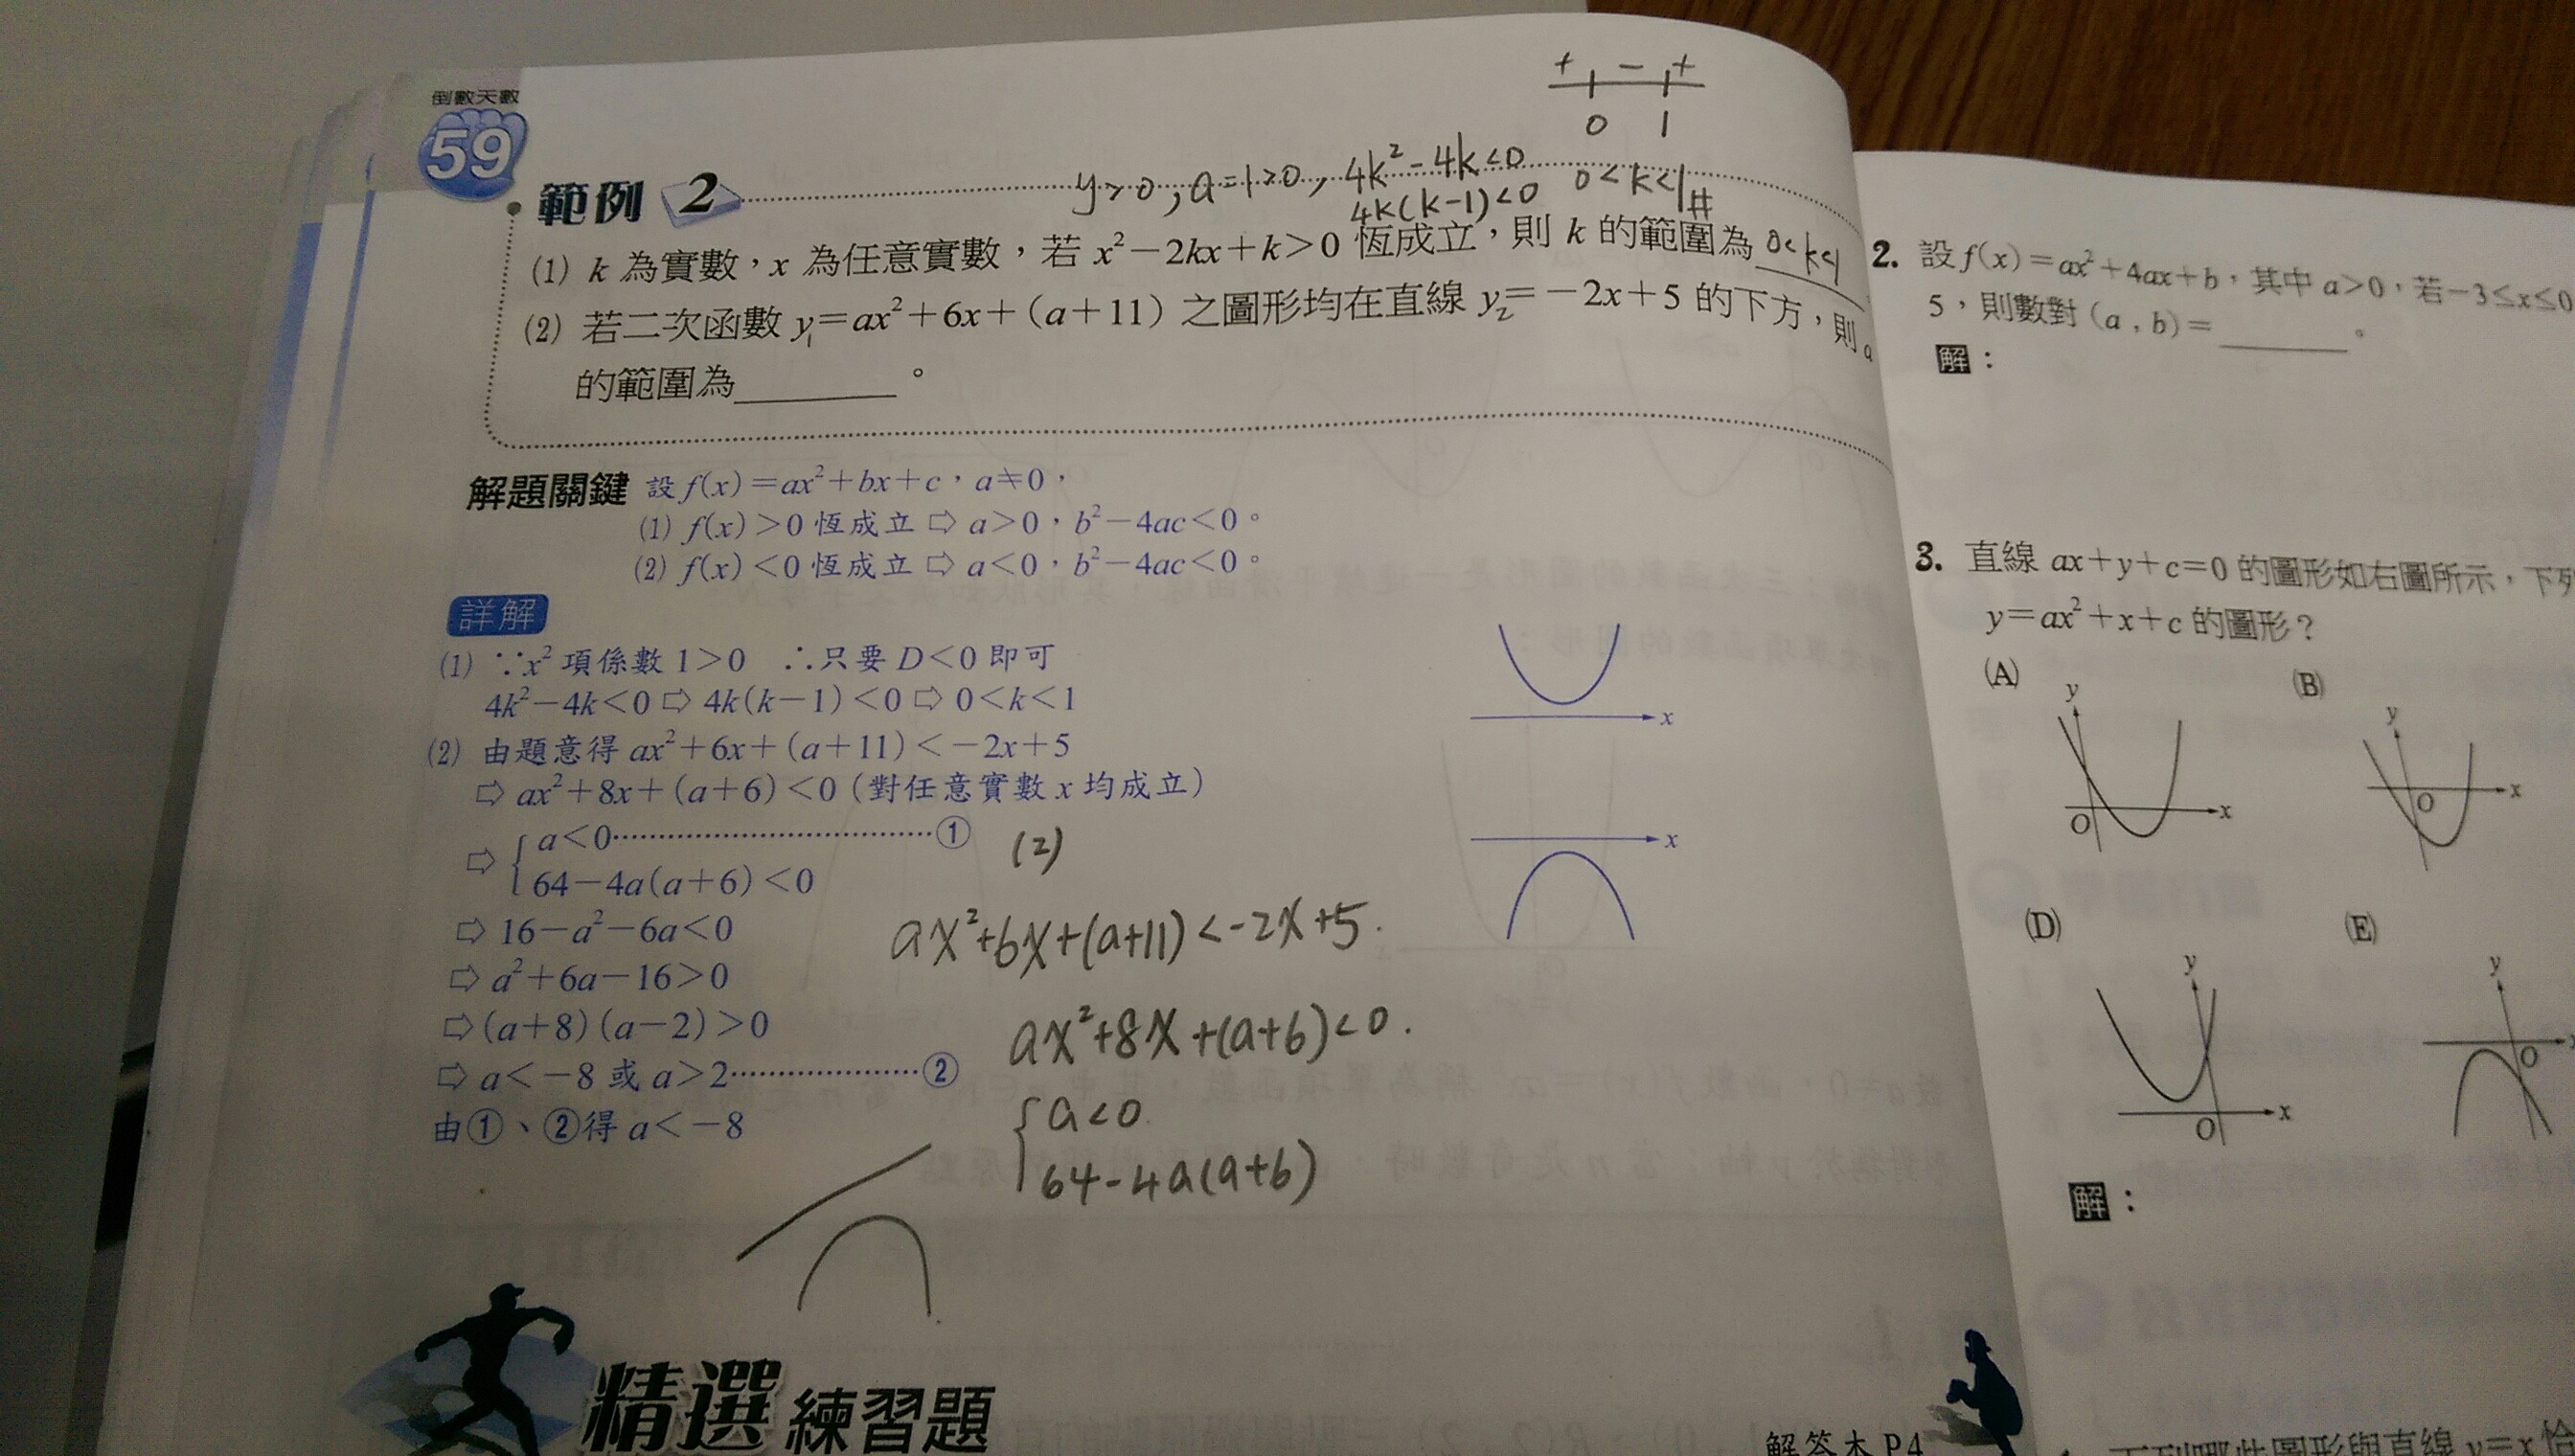 倒數天數
59
+ - +
0 1
範例 2
y>0, a=1>0, 4k²-4k<0 0<k<1 #
4k(k-1)<0
(1) k 為實數，x 為任意實數，若 x²－2kx＋k＞0 恆成立，則 k 的範圍為 0<k<1
(2) 若二次函數 y₁＝ax²＋6x＋（a＋11）之圖形均在直線 y₂＝－2x＋5 的下方，則 a
的範圍為________。
解題關鍵 設 f(x)＝ax²＋bx＋c，a≠0，
(1) f(x)＞0 恆成立 ⇨ a＞0，b²－4ac＜0。
(2) f(x)＜0 恆成立 ⇨ a＜0，b²－4ac＜0。
詳解
(1) ∵x² 項係數 1＞0 ∴只要 D＜0 即可
4k²－4k＜0 ⇨ 4k(k－1)＜0 ⇨ 0＜k＜1
x
(2) 由題意得 ax²＋6x＋（a＋11）＜－2x＋5
⇨ ax²＋8x＋（a＋6）＜0（對任意實數 x 均成立）
⇨ { a＜0……………………………①
64－4a(a＋6)＜0
x
⇨ 16－a²－6a＜0
⇨ a²＋6a－16＞0
⇨ (a＋8)(a－2)＞0
⇨ a＜－8 或 a＞2…………………②
由①、②得 a＜－8
(2)
ax²+6x+(a+11)<-2x+5.
ax²+8x+(a+6)<0.
{ a<0
64-4a(a+6)
精選練習題
解答本 P4
2. 設 f(x)＝ax²＋4ax＋b，其中 a＞0，若－3≤x≤0
5，則數對（a , b）＝________。
解：
3. 直線 ax＋y＋c＝0 的圖形如右圖所示，下列
y＝ax²＋x＋c 的圖形？
(A)
y
O
x
(B)
y
O
x
(D)
y
O
x
(E)
y
O
解：
下列哪些圖形與直線 y＝x 恰